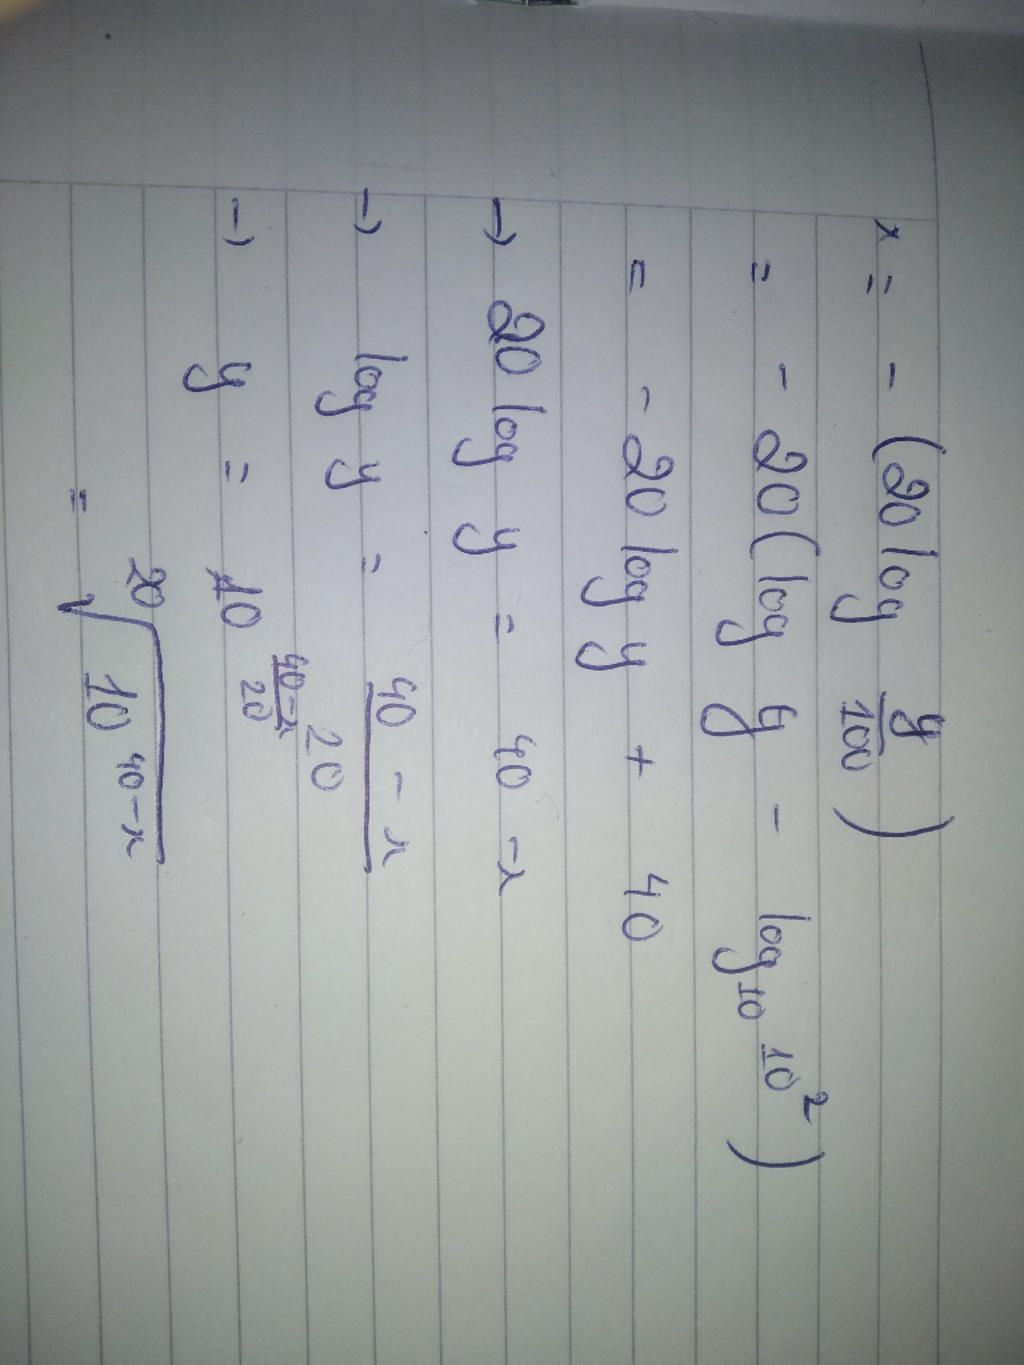 x = - (20 log y/100)
= - 20 (log y - log₁₀ 10²)
= - 20 log y + 40
→ 20 log y = 40 - x
→ log y = (40 - x)/20
→ y = 10^((40-x)/20)
= ²⁰√(10^(40-x))